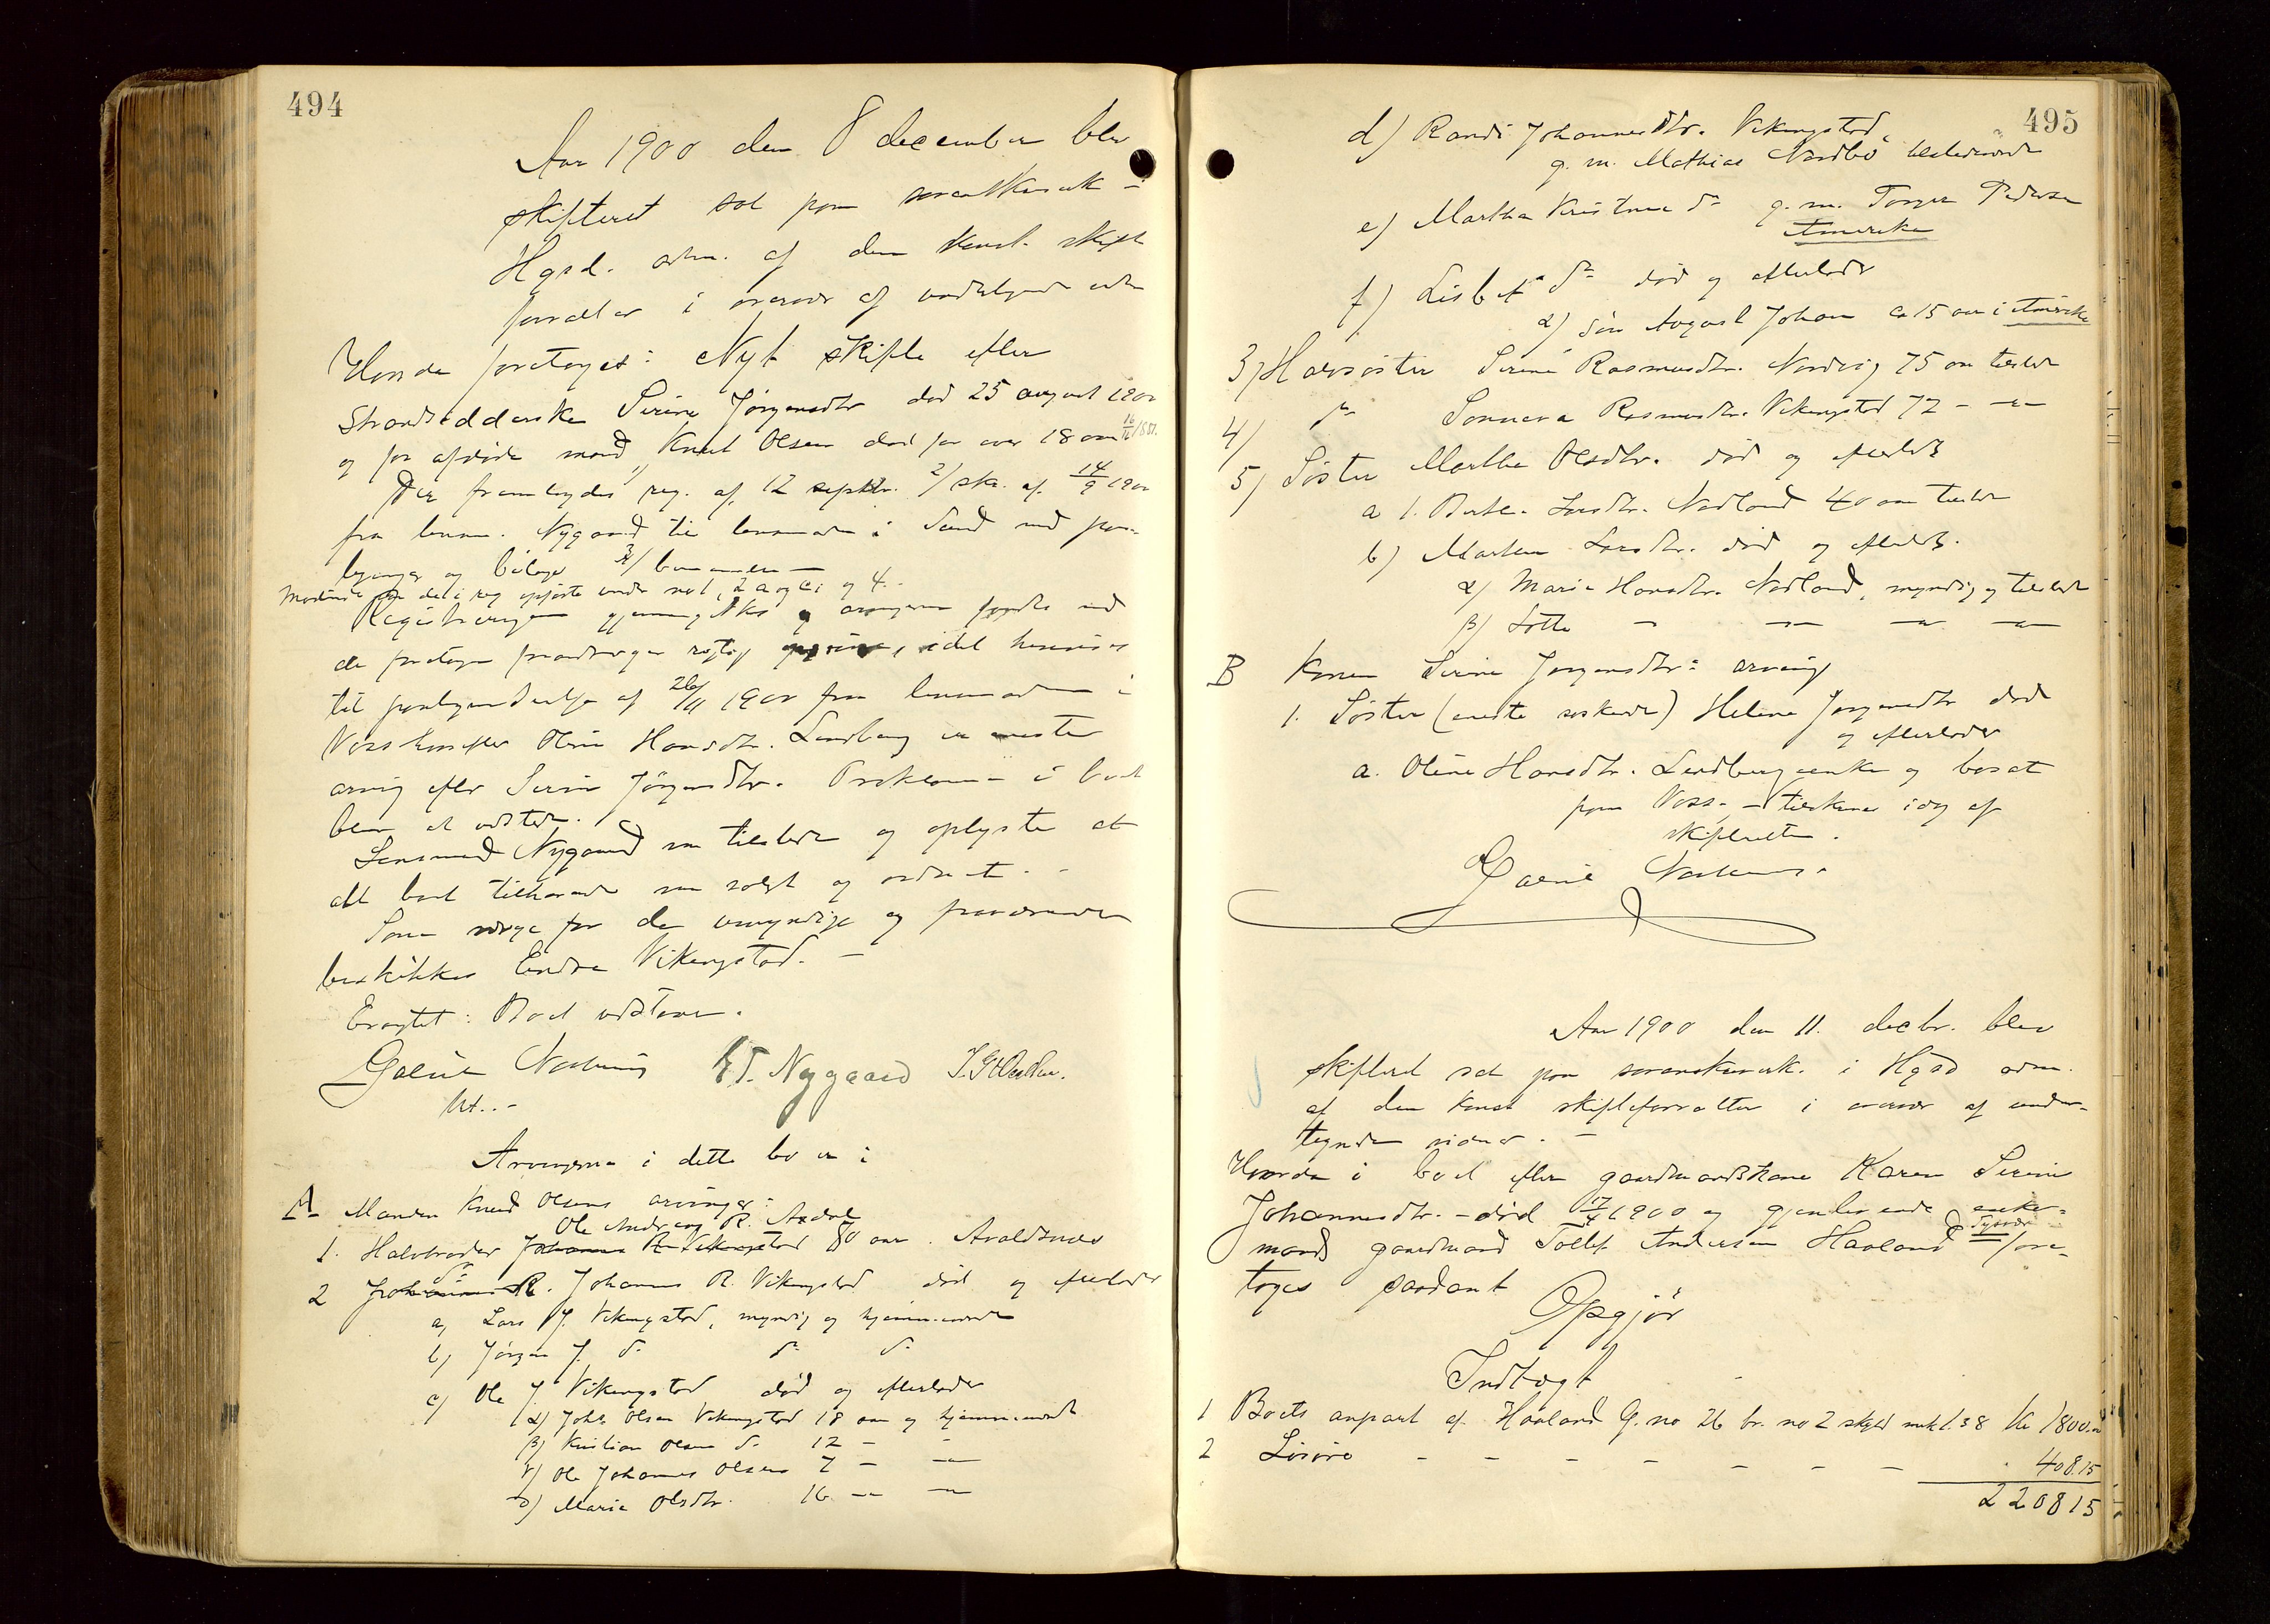 494
Aar 1900 den 8 december blev
skifteret sat paa sorenskriverk i
Hgsd. adm. af den konst. skifte
forvalter i overvær af undertegnede vidner
Hvorda foretoges: Nyt skifte efter
Strandsidderske Serine Jørgensdtr død 25 august 1900
og før afdøde mand Knut Olsen død for over 18 aar
Der fremlagdes 1/ reg. af 12 septbr. 2/ skr. af 14/9 1900
fra lensm. Nygaard til lensmanden i Sand med paa-
tegninger og bilage 3/
Registreringen gjennemgikkes og arvingerne
de foretagne forandringer rigtig opgivne, idet henvises
til paategnet af 26/11 1900 fra lensmanden i
Voss hvorefter Oline Hansdtr. Lindberg er eneste
arving efter Serine Jørgensdtr. Proklama i boet
blev at udstede.
Lensmand Nygaard var tilstede og oplyste at
alt boet tilhørende var solgt og ordnet.
Som værge for de umyndige og fraværende
beskikkes Endre Vikingstad. —
Eragtet: Boet udstaar.
E T. Nygaard
Arvingerne i dette bo er:
A Manden Knud Olsens arvinger:
Ole Andreas R. Axdal
1. Halvbroder Johannes R. Vikingstad 80 aar. Avaldsnes
2 do Johannes R. Vikingstad død og efterlader
a) Lars J. Vikingstad, myndig og hjemmeværende
b) Jørgen J. do do do
c) Ole J. Vikingstad død og efterlader
α) Johs Olsen Vikingstad 18 aar og hjemmeværende
β) Kristian Olsen do 12 — —
γ) Ole Johannes Olsen 7 — —
δ) Maria Olsdtr. 16 — —
495
d) Randi Johannesdtr. Vikingstad,
g. m. Mathias Nordbø tilstedeværende
e) Martha Kristine do g. m. Torger Pedersen
Amerika
f) Lisbet do død og efterlader
α) søn August Johan ca 15 aar i Amerika
3) Halvsøster Serine Rasmusdtr. Nordvig 75 aar tilstede
4) do Sonneva Rasmusdtr. Vikingstad 72 — —
5) Søster Marthe Olsdtr. død og efterladt
a 1. Berte Larsdtr. Nodland 40 aar tilstede
b) Marthe Larsdtr. død og efterladt.
α) Marie Hansdtr. Nodland, myndig og tilstede
β) Lotte — — — —
B Konen Serine Jørgensdtr: arving
1. Søster (eneste søskende) Helene Jørgensdtr død
og efterlader
a. Oline Hansdtr. Lindberg enke og bosat
paa Voss. — tilskrives idag af
skifteretten.
Aar 1900 den 11. decbr. blev
skifteret sat paa sorenskriverk. i Hgsd adm.
af den konst skifteforvalter i overvær af under-
tegnede vidner. —
Hvorda i boet efter gaardmandskone Karen Serine
Johannesdtr. — død 17/4 1900 og gjenlevende enke-
mand gaardmand Tollef Andersen Haaland Tysvær fore-
toges saadant
Opgjør
Indtægt
1 Boets anpart af Haaland G. no 26 br. no 2 skyld mrk 1.38 Kr 1800.-
2 Løsøre - - - - - - - 408.15
2208 15